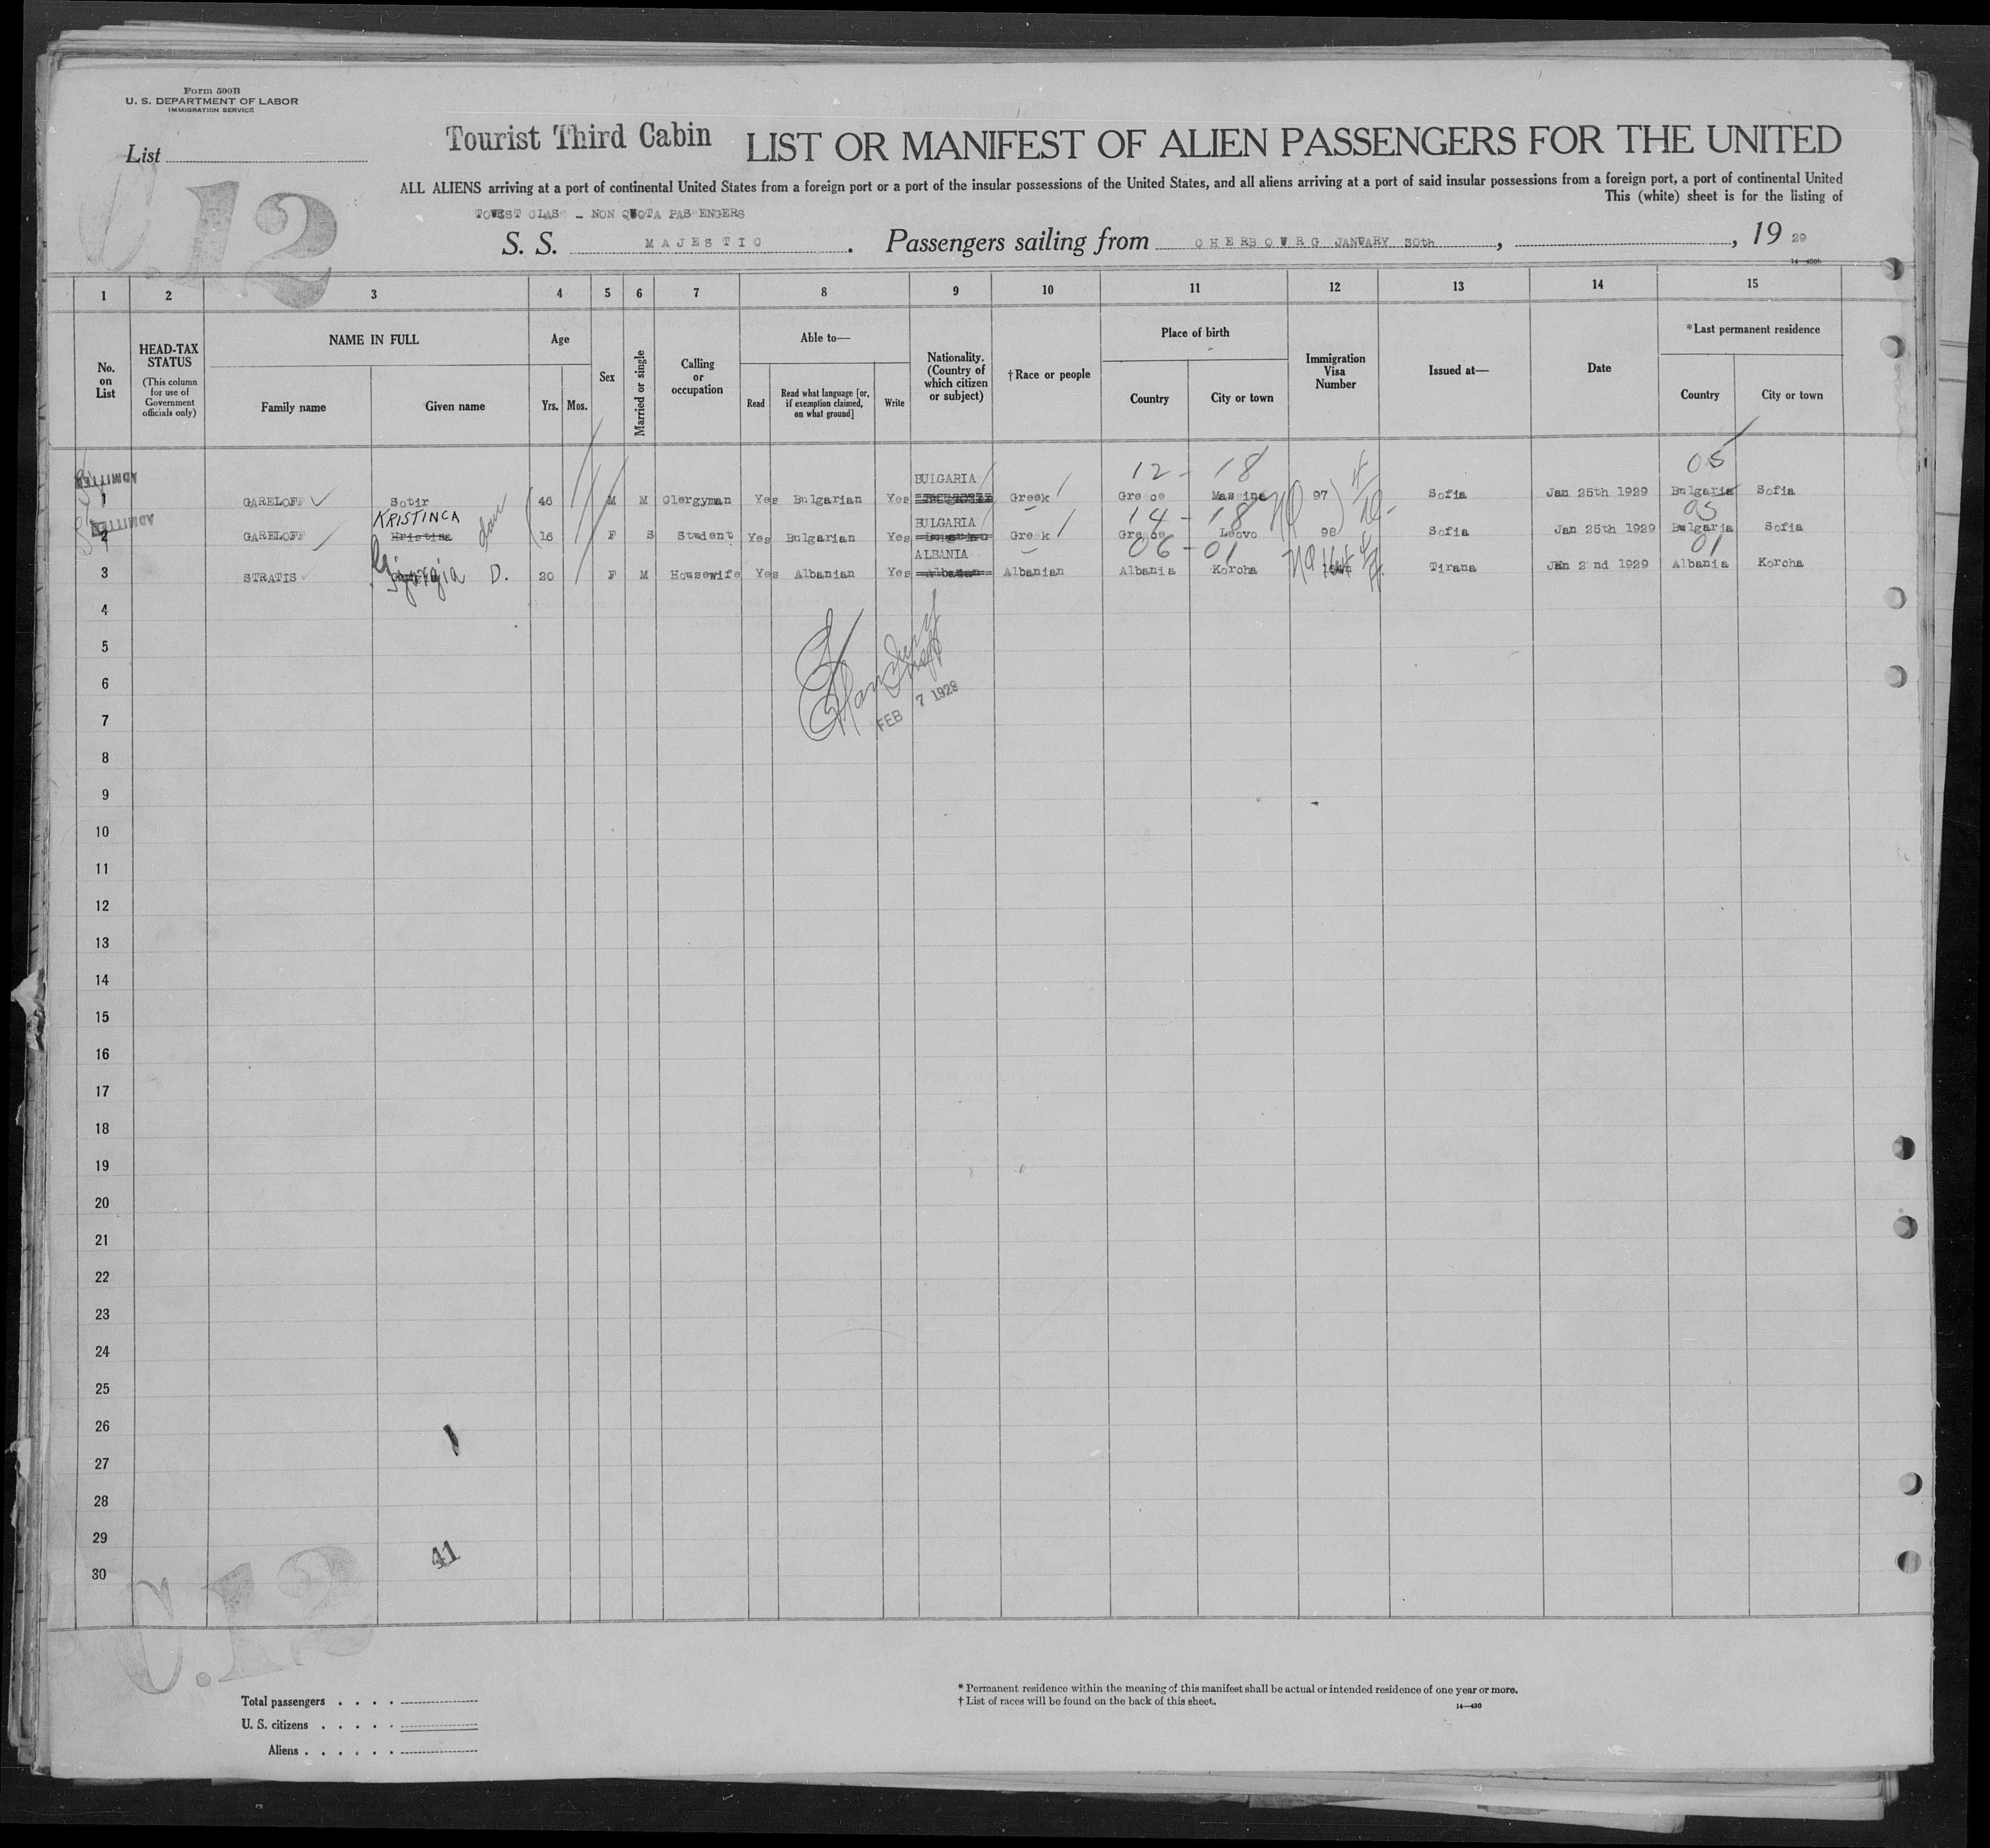 Form 500B
U. S. DEPARTMENT OF LABOR
IMMIGRATION SERVICE
List
C.12
Tourist Third Cabin LIST OR MANIFEST OF ALIEN PASSENGERS FOR THE UNITED
ALL ALIENS arriving at a port of continental United States from a foreign port or a port of the insular possessions of the United States, and all aliens arriving at a port of said insular possessions from a foreign port, a port of continental United
This (white) sheet is for the listing of
TOURIST CLASS - NON QUOTA PASSENGERS
S. S. MAJESTIC. Passengers sailing from CHERBOURG JANUARY 30th, , 19 29
1 2 3 4 5 6 7 8 9 10 11 12 13 14 15
No. on List
HEAD-TAX STATUS
(This column for use of Government officials only)
NAME IN FULL
Family name Given name
Age
Yrs. Mos.
Sex
Married or single
Calling or occupation
Able to—
Read
Read what language [or, if exemption claimed, on what ground]
Write
Nationality. (Country of which citizen or subject)
†Race or people
Place of birth
Country City or town
Immigration Visa Number
Issued at—
Date
*Last permanent residence
Country City or town
ADMITTED
BULGARIA 12 - 18 05
1 GARELOFF Sotir 46 M M Clergyman Yes Bulgarian Yes Greek Greece Massina 97 Sofia Jan 25th 1929 Bulgaria Sofia
ADMITTED
KRISTINCA BULGARIA 14 - 18 05
2 GARELOFF Hristina 16 F S Student Yes Bulgarian Yes Bulgarian Greek Greece Leovo 98 Sofia Jan 25th 1929 Bulgaria Sofia
ALBANIA 06 - 01 01
3 STRATIS D. 20 F M Housewife Yes Albanian Yes Albanian Albanian Albania Korcha Tirana Jan 2nd 1929 Albania Korcha
4
5
6
7
FEB 7 1929
8
9
10
11
12
13
14
15
16
17
18
19
20
21
22
23
24
25
26
27
28
29
30
41
C.12
Total passengers
U. S. citizens
Aliens
* Permanent residence within the meaning of this manifest shall be actual or intended residence of one year or more.
† List of races will be found on the back of this sheet.
14—430